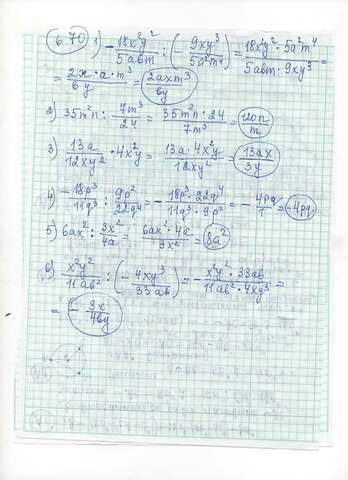 6.70 1) -18x²y²/5abm : (-9xy³/5a²m⁴) = 18x²y² · 5a²m⁴/5abm · 9xy³ =
= 2x · a · m³/by = 2axm³/by
2) 35m²n : 7m³/24 = 35m²n · 24/7m³ = 120n/m
3) 13a/12xy² · 4x²y = 13a · 4x²y/12xy² = 13ax/3y
4) -18p³/11q³ : 9p²/22q⁴ = -18p³ · 22q⁴/11q³ · 9p² = -4pq/1 = -4pq
5) 6ax² : 3x²/4a = 6ax² · 4a/3x² = 8a²
6) x²y²/11ab² : (-4xy³/33ab) = -x²y² · 33ab/11ab² · 4xy³ =
= -3x/4by